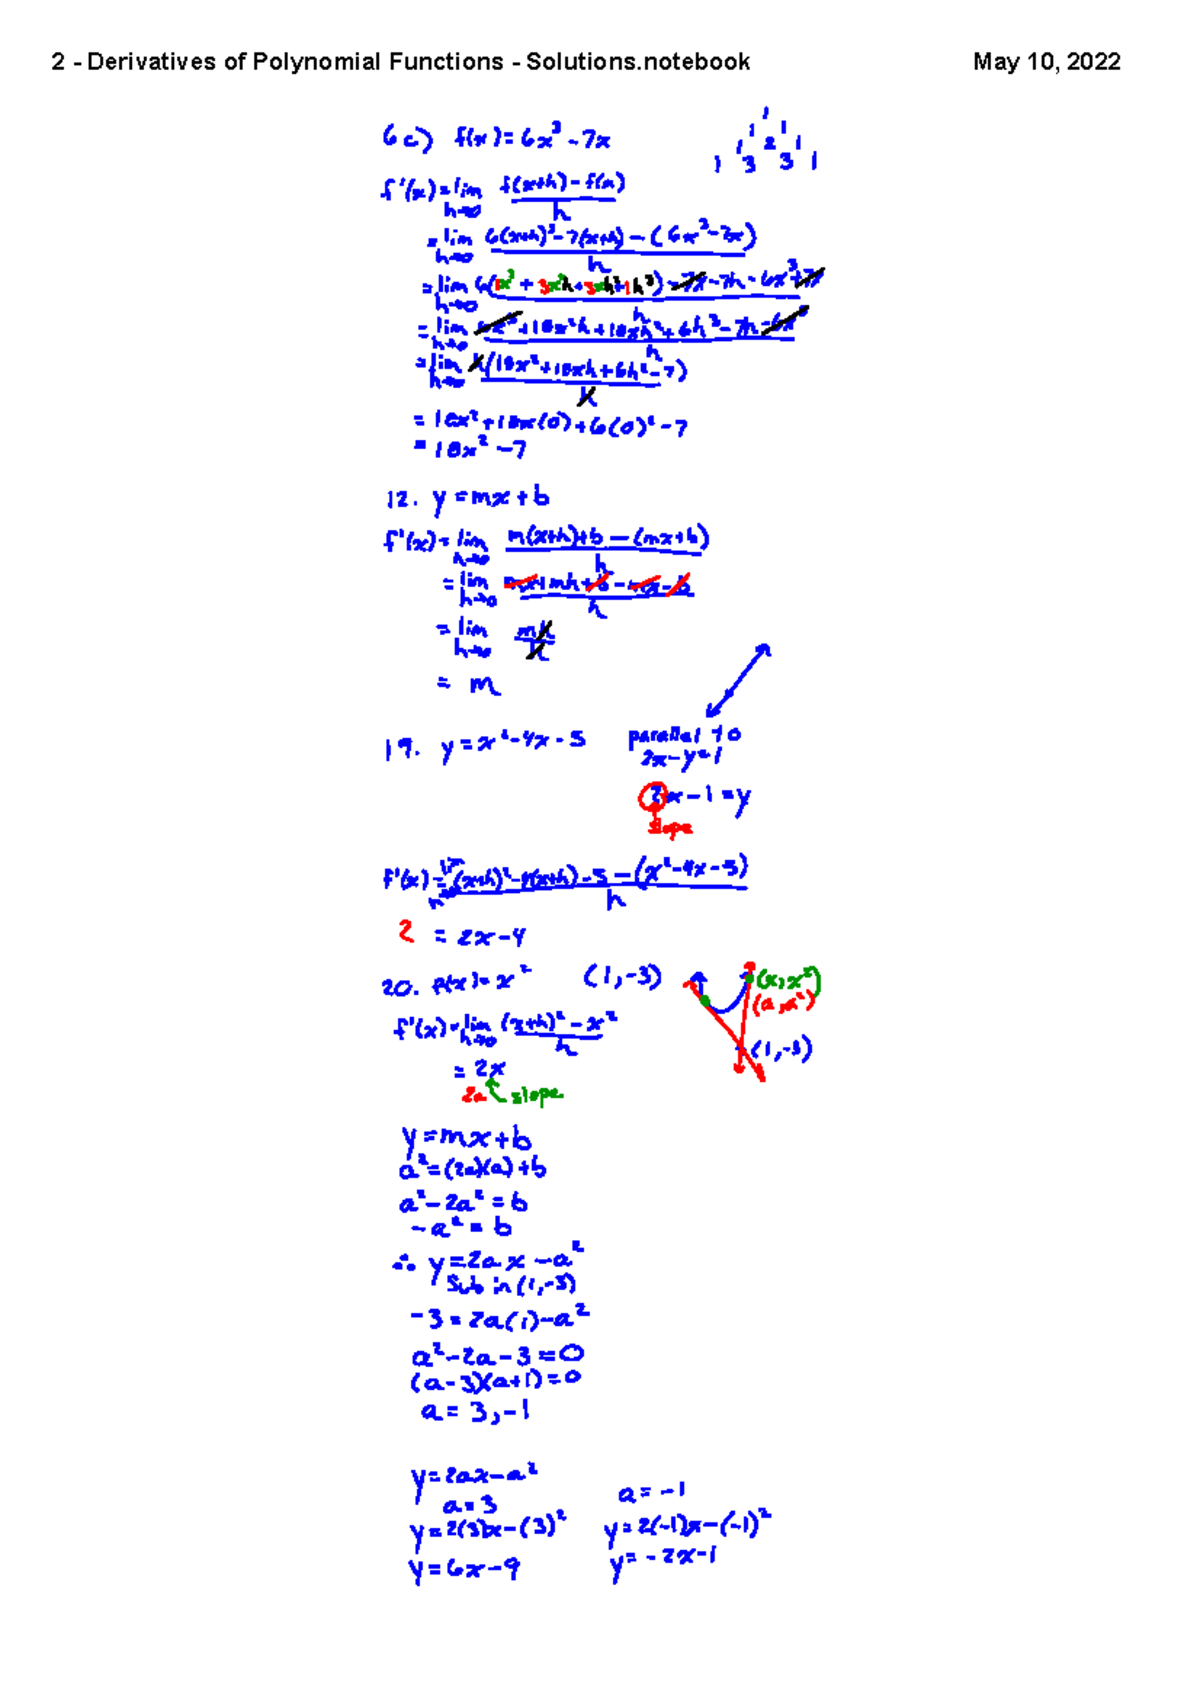 2 - Derivatives of Polynomial Functions - Solutions.notebook
May 10, 2022
6 c) f(x) = 6x³ - 7x
1
1 1
1 2 1
1 3 3 1
f'(x) = lim h→0 f(x+h) - f(x) / h
= lim h→0 6(x+h)³ - 7(x+h) - (6x³ - 7x) / h
= lim h→0 6(1x³ + 3x²h + 3xh² + 1h³) - 7x - 7h - 6x³ + 7x / h
= lim h→0 6x³ + 18x²h + 18xh² + 6h³ - 7h - 6x³ / h
= lim h→0 h(18x² + 18xh + 6h² - 7) / h
= 18x² + 18x(0) + 6(0)² - 7
= 18x² - 7
12. y = mx + b
f'(x) = lim h→0 m(x+h)+b - (mx+b) / h
= lim h→0 mx + mh + b - mx - b / h
= lim h→0 mh / h
= m
19. y = x² - 4x - 5
parallel to
2x - y = 1
2x - 1 = y
slope
f'(x) = lim h→0 (x+h)² - 4(x+h) - 5 - (x² - 4x - 5) / h
2 = 2x - 4
20. f(x) = x² (1, -3)
(x, x²)
(a, a²)
(1, -3)
f'(x) = lim h→0 (x+h)² - x² / h
= 2x
2a slope
y = mx + b
a² = (2a)(a) + b
a² - 2a² = b
- a² = b
∴ y = 2ax - a²
Sub in (1, -3)
-3 = 2a(1) - a²
a² - 2a - 3 = 0
(a - 3)(a + 1) = 0
a = 3, -1
y = 2ax - a²
a = 3
y = 2(3)x - (3)²
y = 6x - 9
a = -1
y = 2(-1)x - (-1)²
y = - 2x - 1